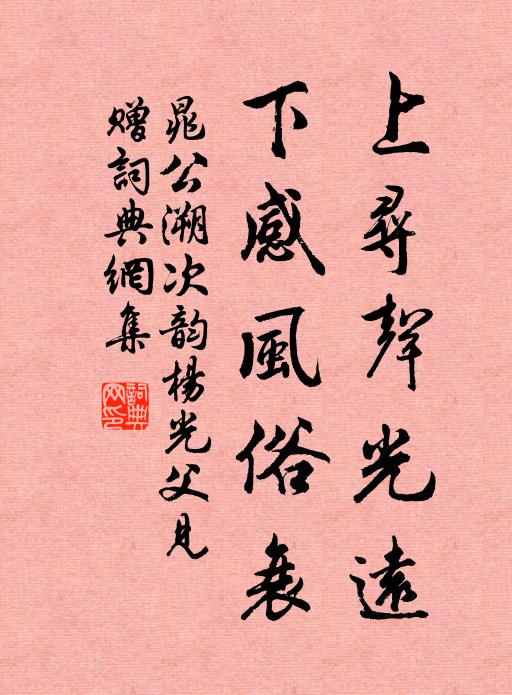 上尋聲光遠
下感風俗衰
晁公溯次韵楊光父見
贈詞典網集
詞典
网印